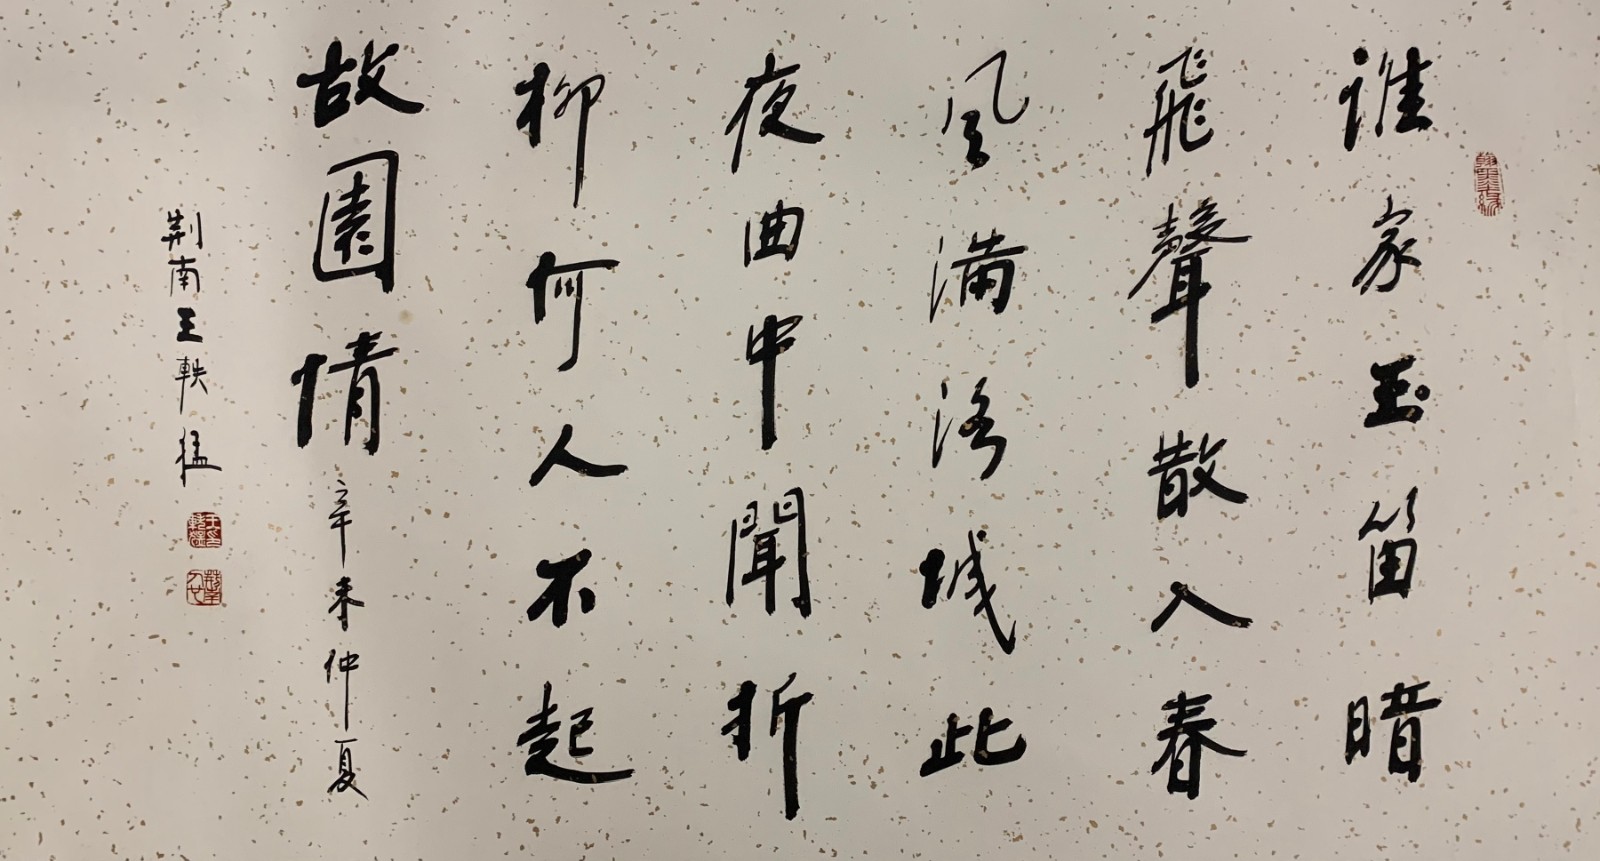 誰家玉笛暗
飛聲散入春
風滿洛城此
夜曲中聞折
柳何人不起
故園情 辛未仲夏
荆南王軼猛